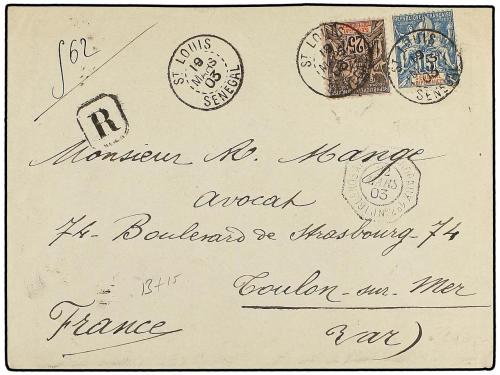 562
ST LOUIS
19
MARS
03
SENEGAL
R
ST LOUIS
25
LOUIS
15
03
SENEGAL
Monsieur A. Mange
avocat
74 - Boulevard de Strasbourg - 74
Toulon-sur-Mer
Var)
France
13+15
MARS
03